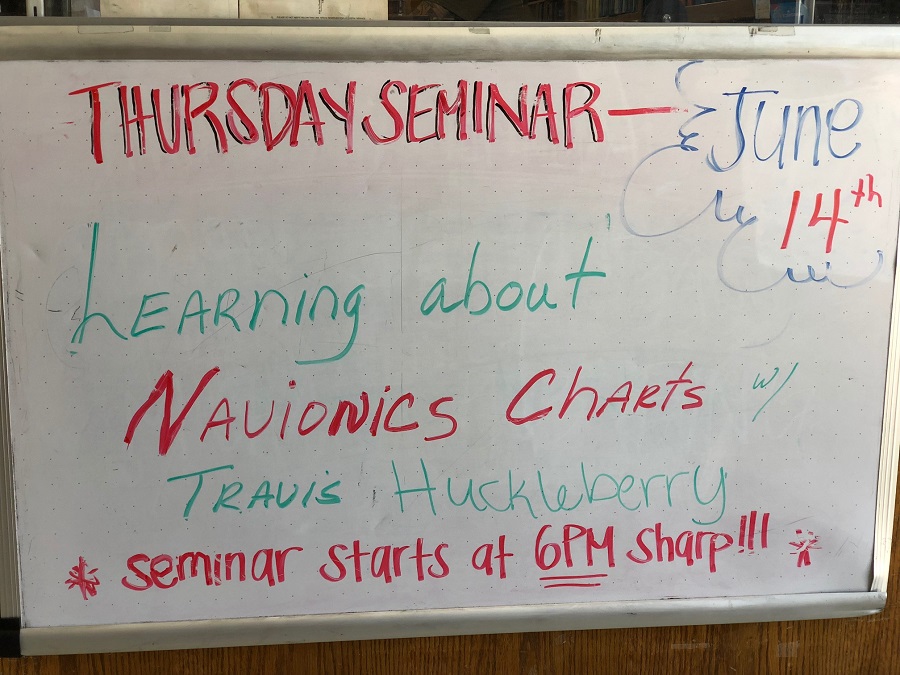 THURSDAY SEMINAR — June
14th
LEARning about
NAVIONICS CHARTS w/
TRAVIS Huckleberry
* seminar starts at 6PM sharp!!! *